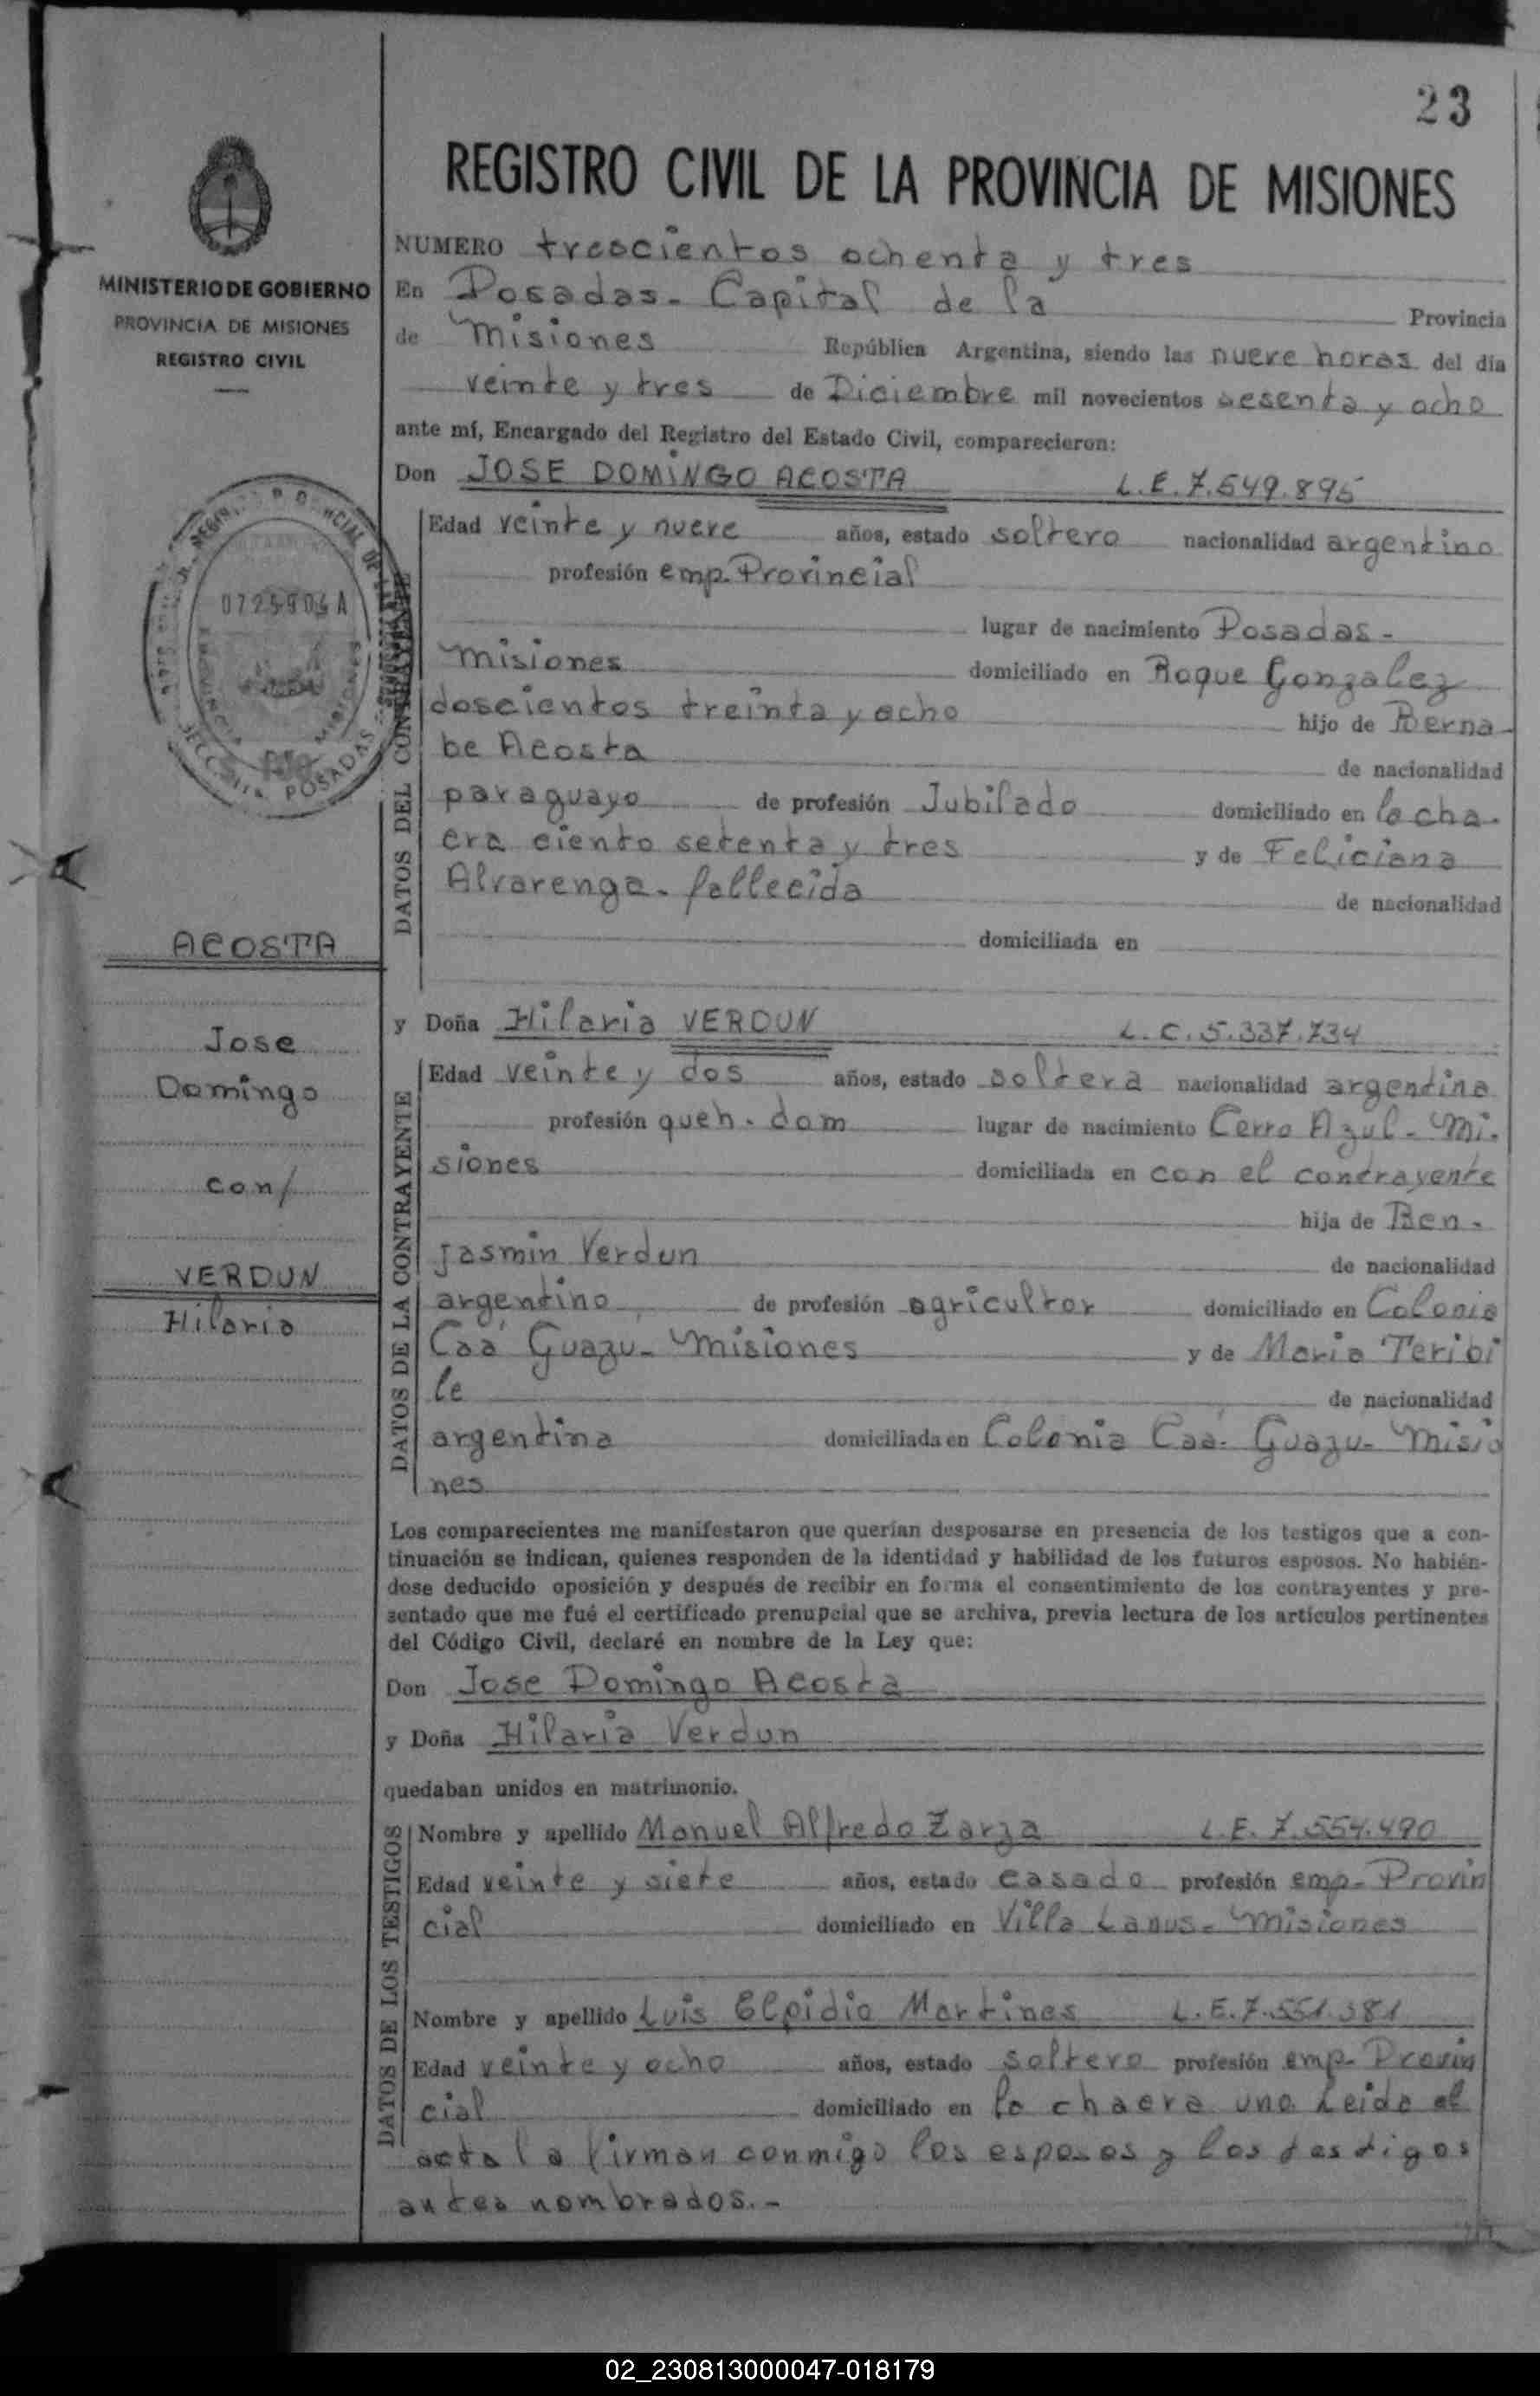 23
REGISTRO CIVIL DE LA PROVINCIA DE MISIONES
MINISTERIO DE GOBIERNO
PROVINCIA DE MISIONES
REGISTRO CIVIL
NUMERO trescientos ochenta y tres
En Posadas - Capital de la Provincia
de Misiones República Argentina, siendo las nueve horas del día
veinte y tres de Diciembre mil novecientos sesenta y ocho
ante mí, Encargado del Registro del Estado Civil, comparecieron:
Don JOSE DOMINGO ACOSTA L.E. 7.549.895
DATOS DEL CONTRAYENTE
Edad veinte y nueve años, estado soltero nacionalidad argentino
profesión emp. Provincial
lugar de nacimiento Posadas -
Misiones domiciliado en Roque Gonzalez
doscientos treinta y ocho hijo de Berna-
be Acosta de nacionalidad
paraguayo de profesión Jubilado domiciliado en la cha-
cra ciento setenta y tres y de Feliciana
Alvarenga - fallecida de nacionalidad
domiciliada en
0725904 A
POSADAS
ACOSTA
Jose
Domingo
con/
VERDUN
Hilaria
y Doña Hilaria VERDUN L.C. 5.337.734
DATOS DE LA CONTRAYENTE
Edad veinte y dos años, estado soltera nacionalidad argentina
profesión queh. dom lugar de nacimiento Cerro Azul - Mi-
siones domiciliada en con el contrayente
hija de Ben-
jasmin Verdun de nacionalidad
argentino de profesión agricultor domiciliado en Colonia
Caá Guazu - Misiones y de Maria Teribi
le de nacionalidad
argentina domiciliada en Colonia Caá - Guazu - Misio
nes
Los comparecientes me manifestaron que querían desposarse en presencia de los testigos que a con-
tinuación se indican, quienes responden de la identidad y habilidad de los futuros esposos. No habién-
dose deducido oposición y después de recibir en forma el consentimiento de los contrayentes y pre-
sentado que me fué el certificado prenupcial que se archiva, previa lectura de los artículos pertinentes
del Código Civil, declaré en nombre de la Ley que:
Don Jose Domingo Acosta
y Doña Hilaria Verdun
quedaban unidos en matrimonio.
DATOS DE LOS TESTIGOS
Nombre y apellido Manuel Alfredo Zarza L.E. 7.554.490
Edad veinte y siete años, estado casado profesión emp. Provin
cial domiciliado en Villa Lanus - Misiones
Nombre y apellido Luis Elpidio Martines L.E. 7.551.381
Edad veinte y ocho años, estado soltero profesión emp. Provin
cial domiciliado en la chacra una. Leida el
acta la firman conmigo los esposos y los testigos
antes nombrados.-
02_230813000047-018179